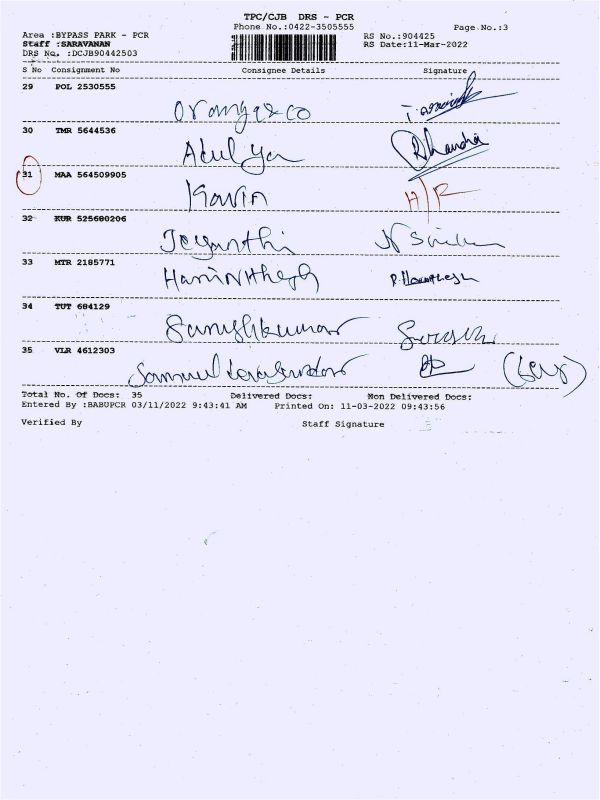 TPC/CJB DRS - PCR
Phone No.:0422-3505555
Page No.:3
Area :BYPASS PARK - PCR
RS No.:904425
Staff :SARAVANAN
RS Date:11-Mar-2022
DRS No. :DCJB90442503
S No Consignment No Consignee Details Signature
29 POL 2530555
Orange & co
30 TMR 5644536
Atulya Dhansha
31 MAA 564509905
Kavin H/R
32 KUR 525680206
Jeyanthi
33 MTR 2185771
Harinithesh P. Harinithesh
34 TUT 684129
Sanushkumar
35 VLR 4612303
Samuel
Total No. Of Docs: 35 Delivered Docs: Non Delivered Docs:
Entered By :BABUPCR 03/11/2022 9:43:41 AM Printed On: 11-03-2022 09:43:56
Verified By Staff Signature